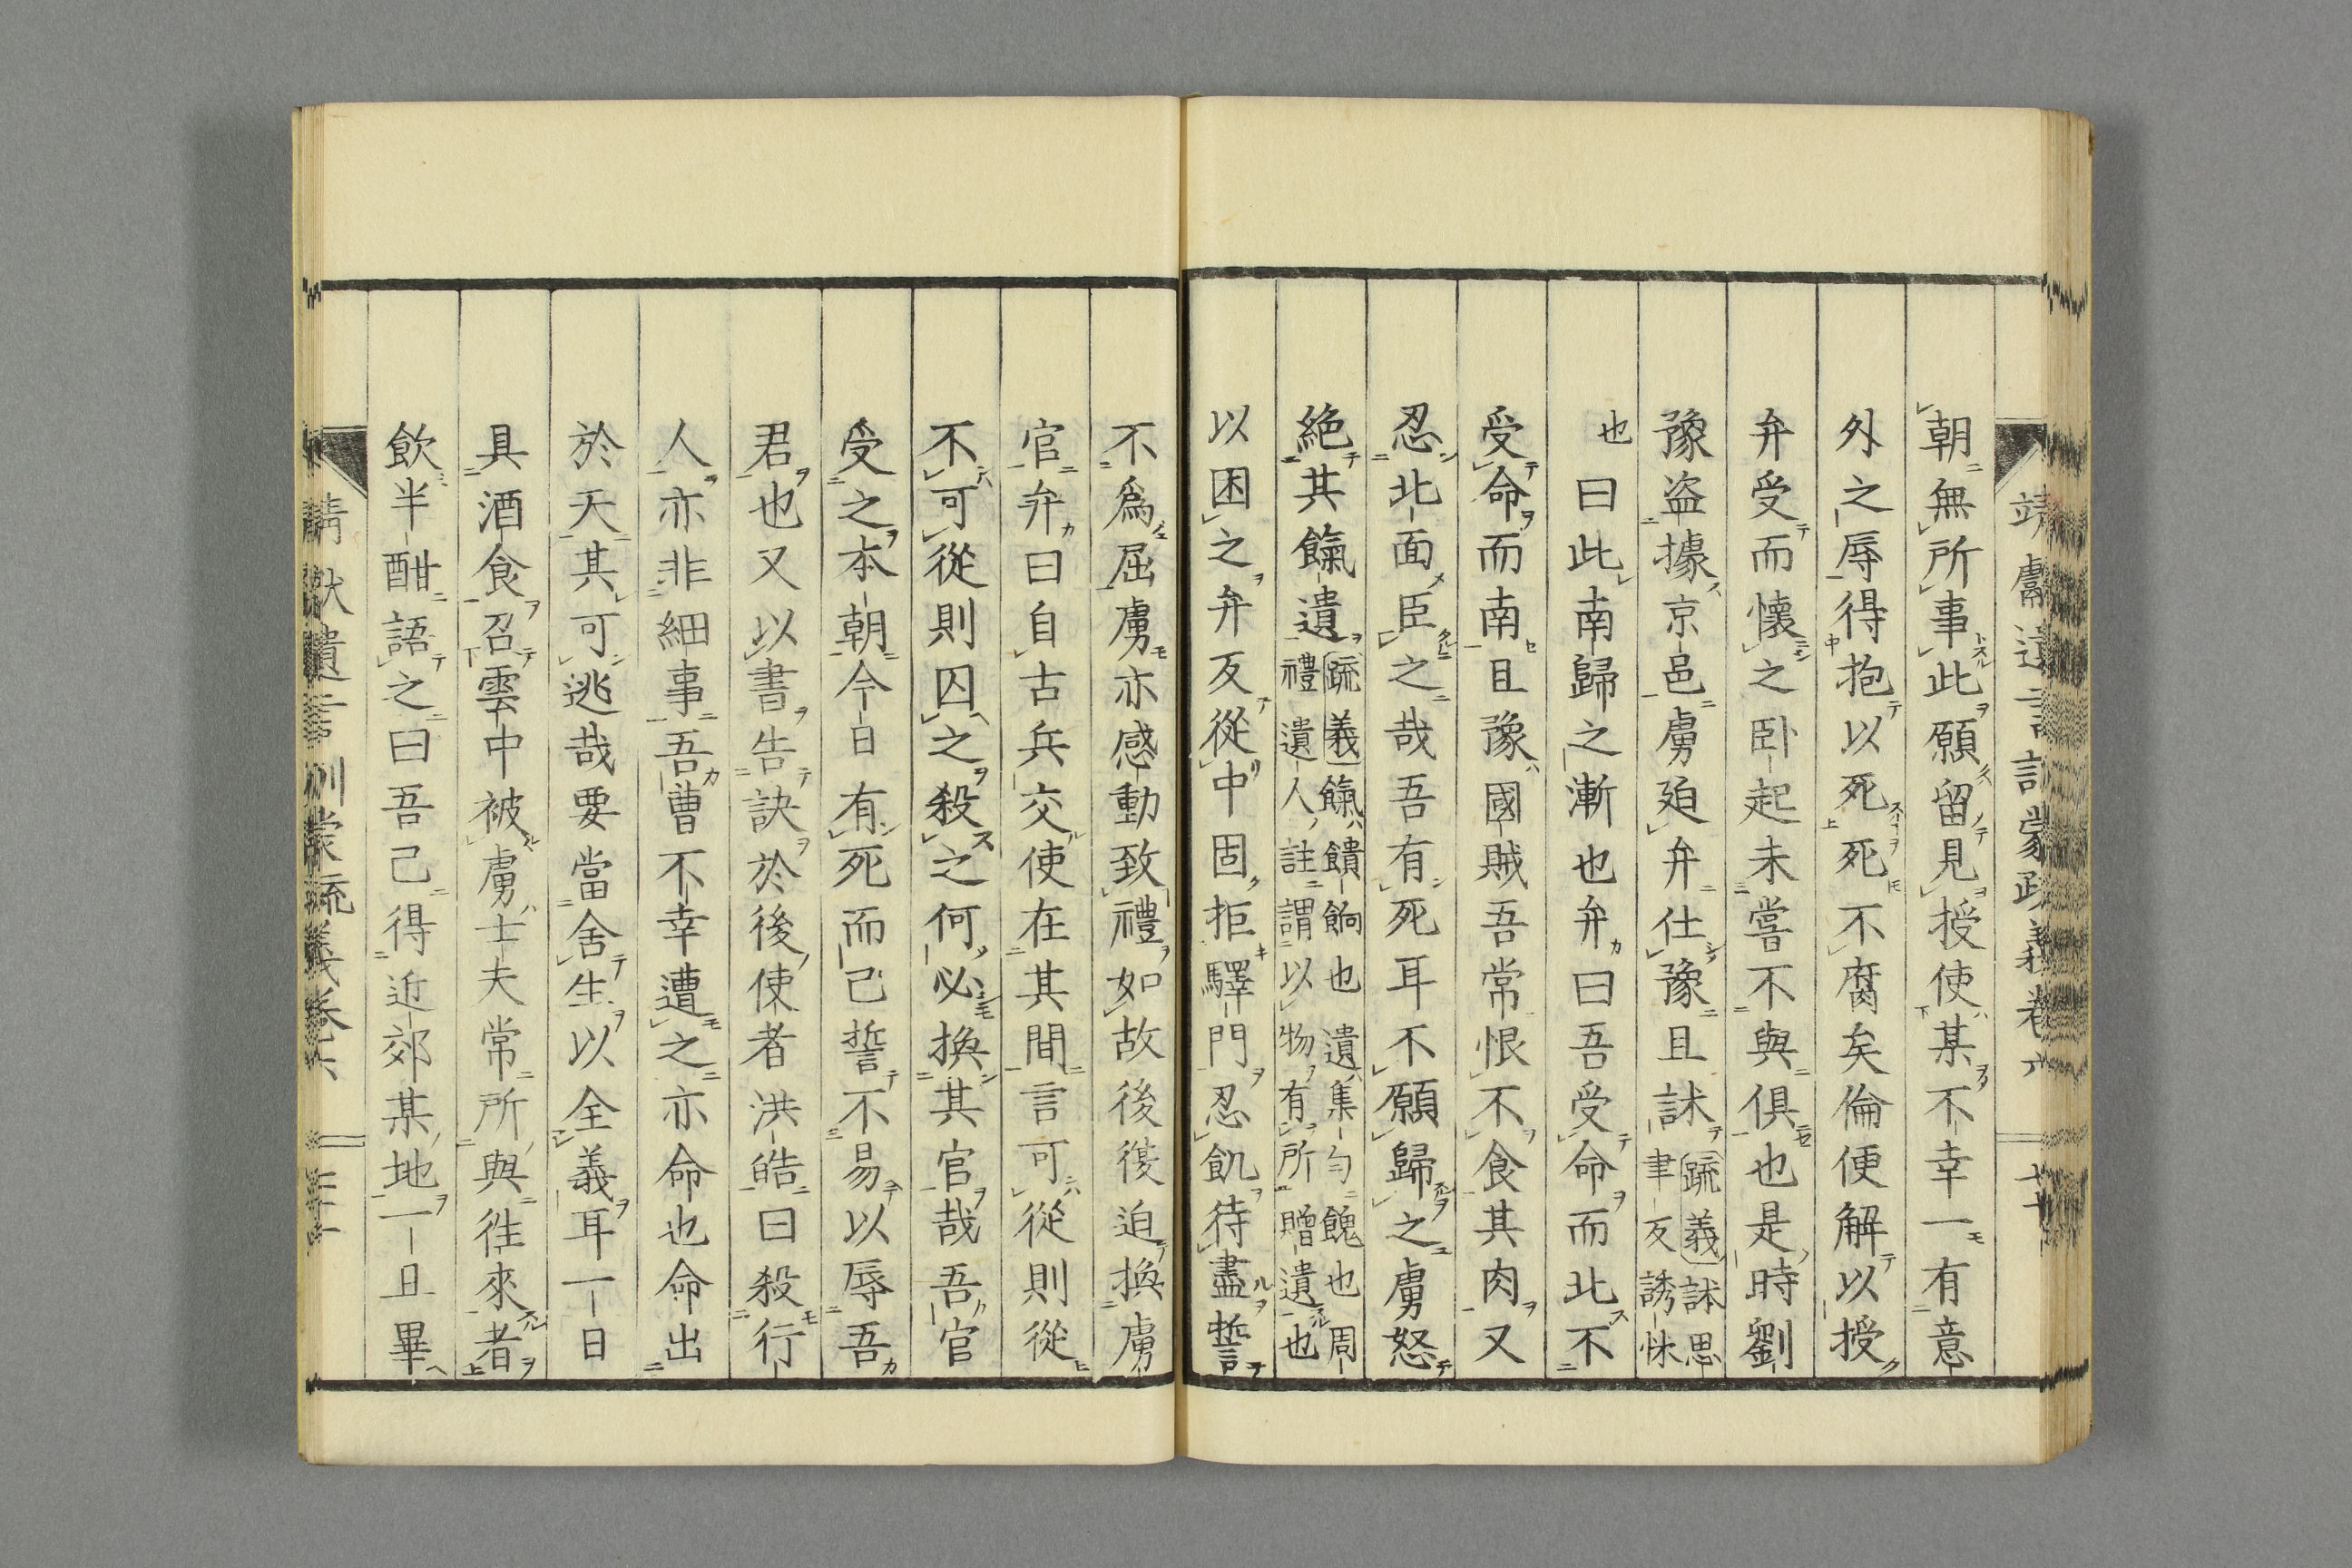 朝無所事此願留見授使某不幸一有意
外之辱得抱以死死不腐矣倫便解以授
弁受而懷之臥起未嘗不與俱也是時劉
豫盗據京邑虜廹弁仕豫且訹聿反誘怵疏義訹思
也曰此南歸之漸也弁曰吾受命而北不
受命而南且豫國賊吾常恨不食其肉又
忍北面臣之哉吾有死耳不願歸之虜怒
絶其餼遺疏義餼饋餉也遺集匀餽也周禮遺人註謂以物有所贈遺也
以困之弁反從中固拒驛門忍飢待盡誓
不爲屈虜亦感動致禮如故後復迫換虜
官弁曰自古兵交使在其間言可從則從
不可從則囚之殺之何必換其官哉吾官
受之本朝今日有死而已誓不易以辱吾
君也又以書告訣於後使者洪皓曰殺行
人亦非細事吾曹不幸遭之亦命也命出
於天其可逃哉要當舍生以全義耳一日
具酒食召雲中被虜士夫常所與往來者
飲半酣語之曰吾已得近郊某地一旦畢